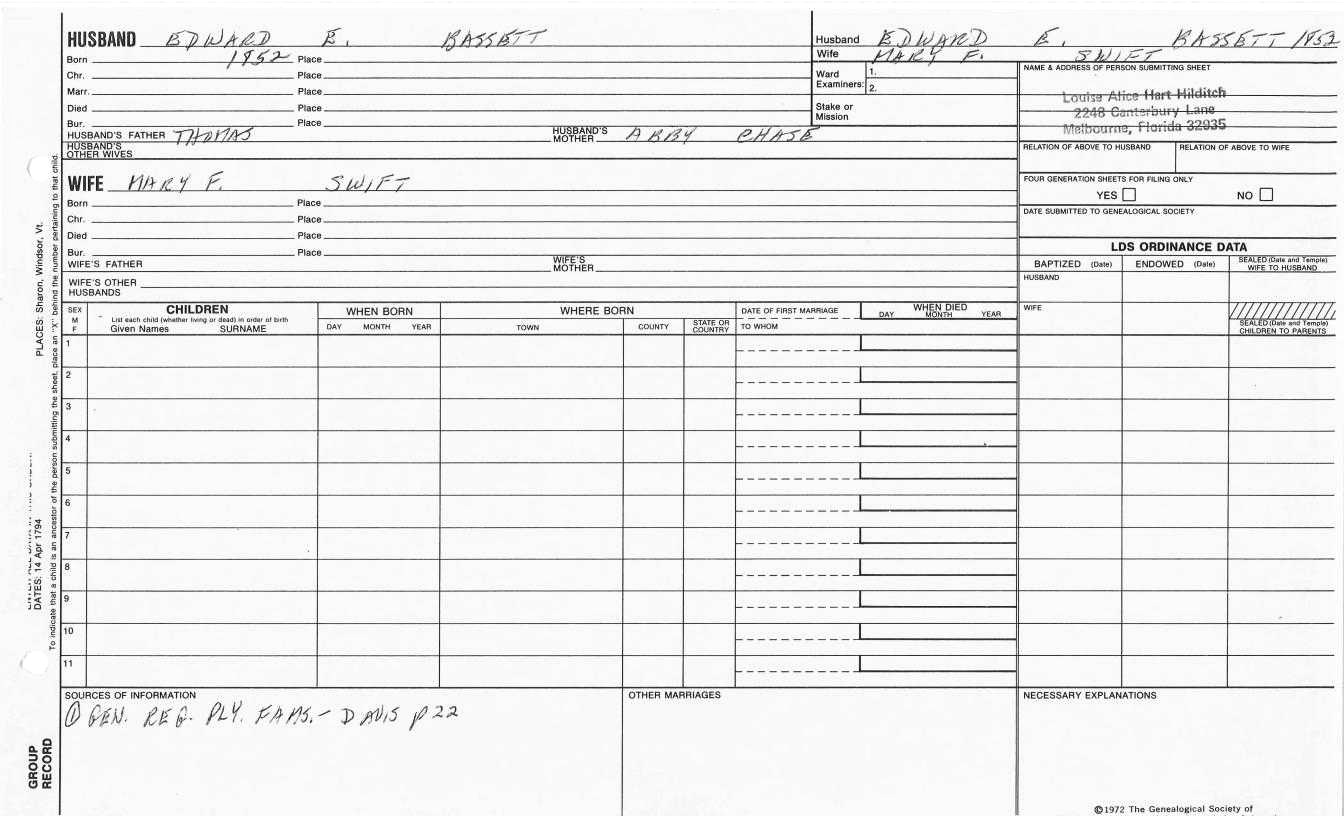 HUSBAND EDWARD E. BASSETT
Born 1852 Place
Chr. Place
Marr. Place
Died Place
Bur. Place
HUSBAND'S FATHER THOMAS HUSBAND'S MOTHER ABBY CHASE
HUSBAND'S OTHER WIVES
Husband EDWARD E. BASSETT 1852
Wife MARY F. SWIFT
Ward Examiners: 1.
2.
Stake or Mission
NAME & ADDRESS OF PERSON SUBMITTING SHEET
Louise Alice Hart Hilditch
2248 Canterbury Lane
Melbourne, Florida 32935
RELATION OF ABOVE TO HUSBAND RELATION OF ABOVE TO WIFE
FOUR GENERATION SHEETS FOR FILING ONLY
YES NO
DATE SUBMITTED TO GENEALOGICAL SOCIETY
WIFE MARY F. SWIFT
Born Place
Chr. Place
Died Place
Bur. Place
WIFE'S FATHER WIFE'S MOTHER
WIFE'S OTHER HUSBANDS
LDS ORDINANCE DATA
BAPTIZED (Date) ENDOWED (Date) SEALED (Date and Temple) WIFE TO HUSBAND
HUSBAND
WIFE
SEALED (Date and Temple) CHILDREN TO PARENTS
SEX M F
CHILDREN
List each child (whether living or dead) in order of birth
Given Names SURNAME
WHEN BORN
DAY MONTH YEAR
WHERE BORN
TOWN COUNTY STATE OR COUNTRY
DATE OF FIRST MARRIAGE
TO WHOM
WHEN DIED
DAY MONTH YEAR
1
2
3
4
5
6
7
8
9
10
11
SOURCES OF INFORMATION
① GEN. REG. PLY. FAMS. - DAVIS p 22
OTHER MARRIAGES
NECESSARY EXPLANATIONS
©1972 The Genealogical Society of
PLACES: Sharon, Windsor, Vt.
DATES: 14 Apr 1794
To indicate that a child is an ancestor of the person submitting the sheet, place an "X" behind the number pertaining to that child.
GROUP RECORD